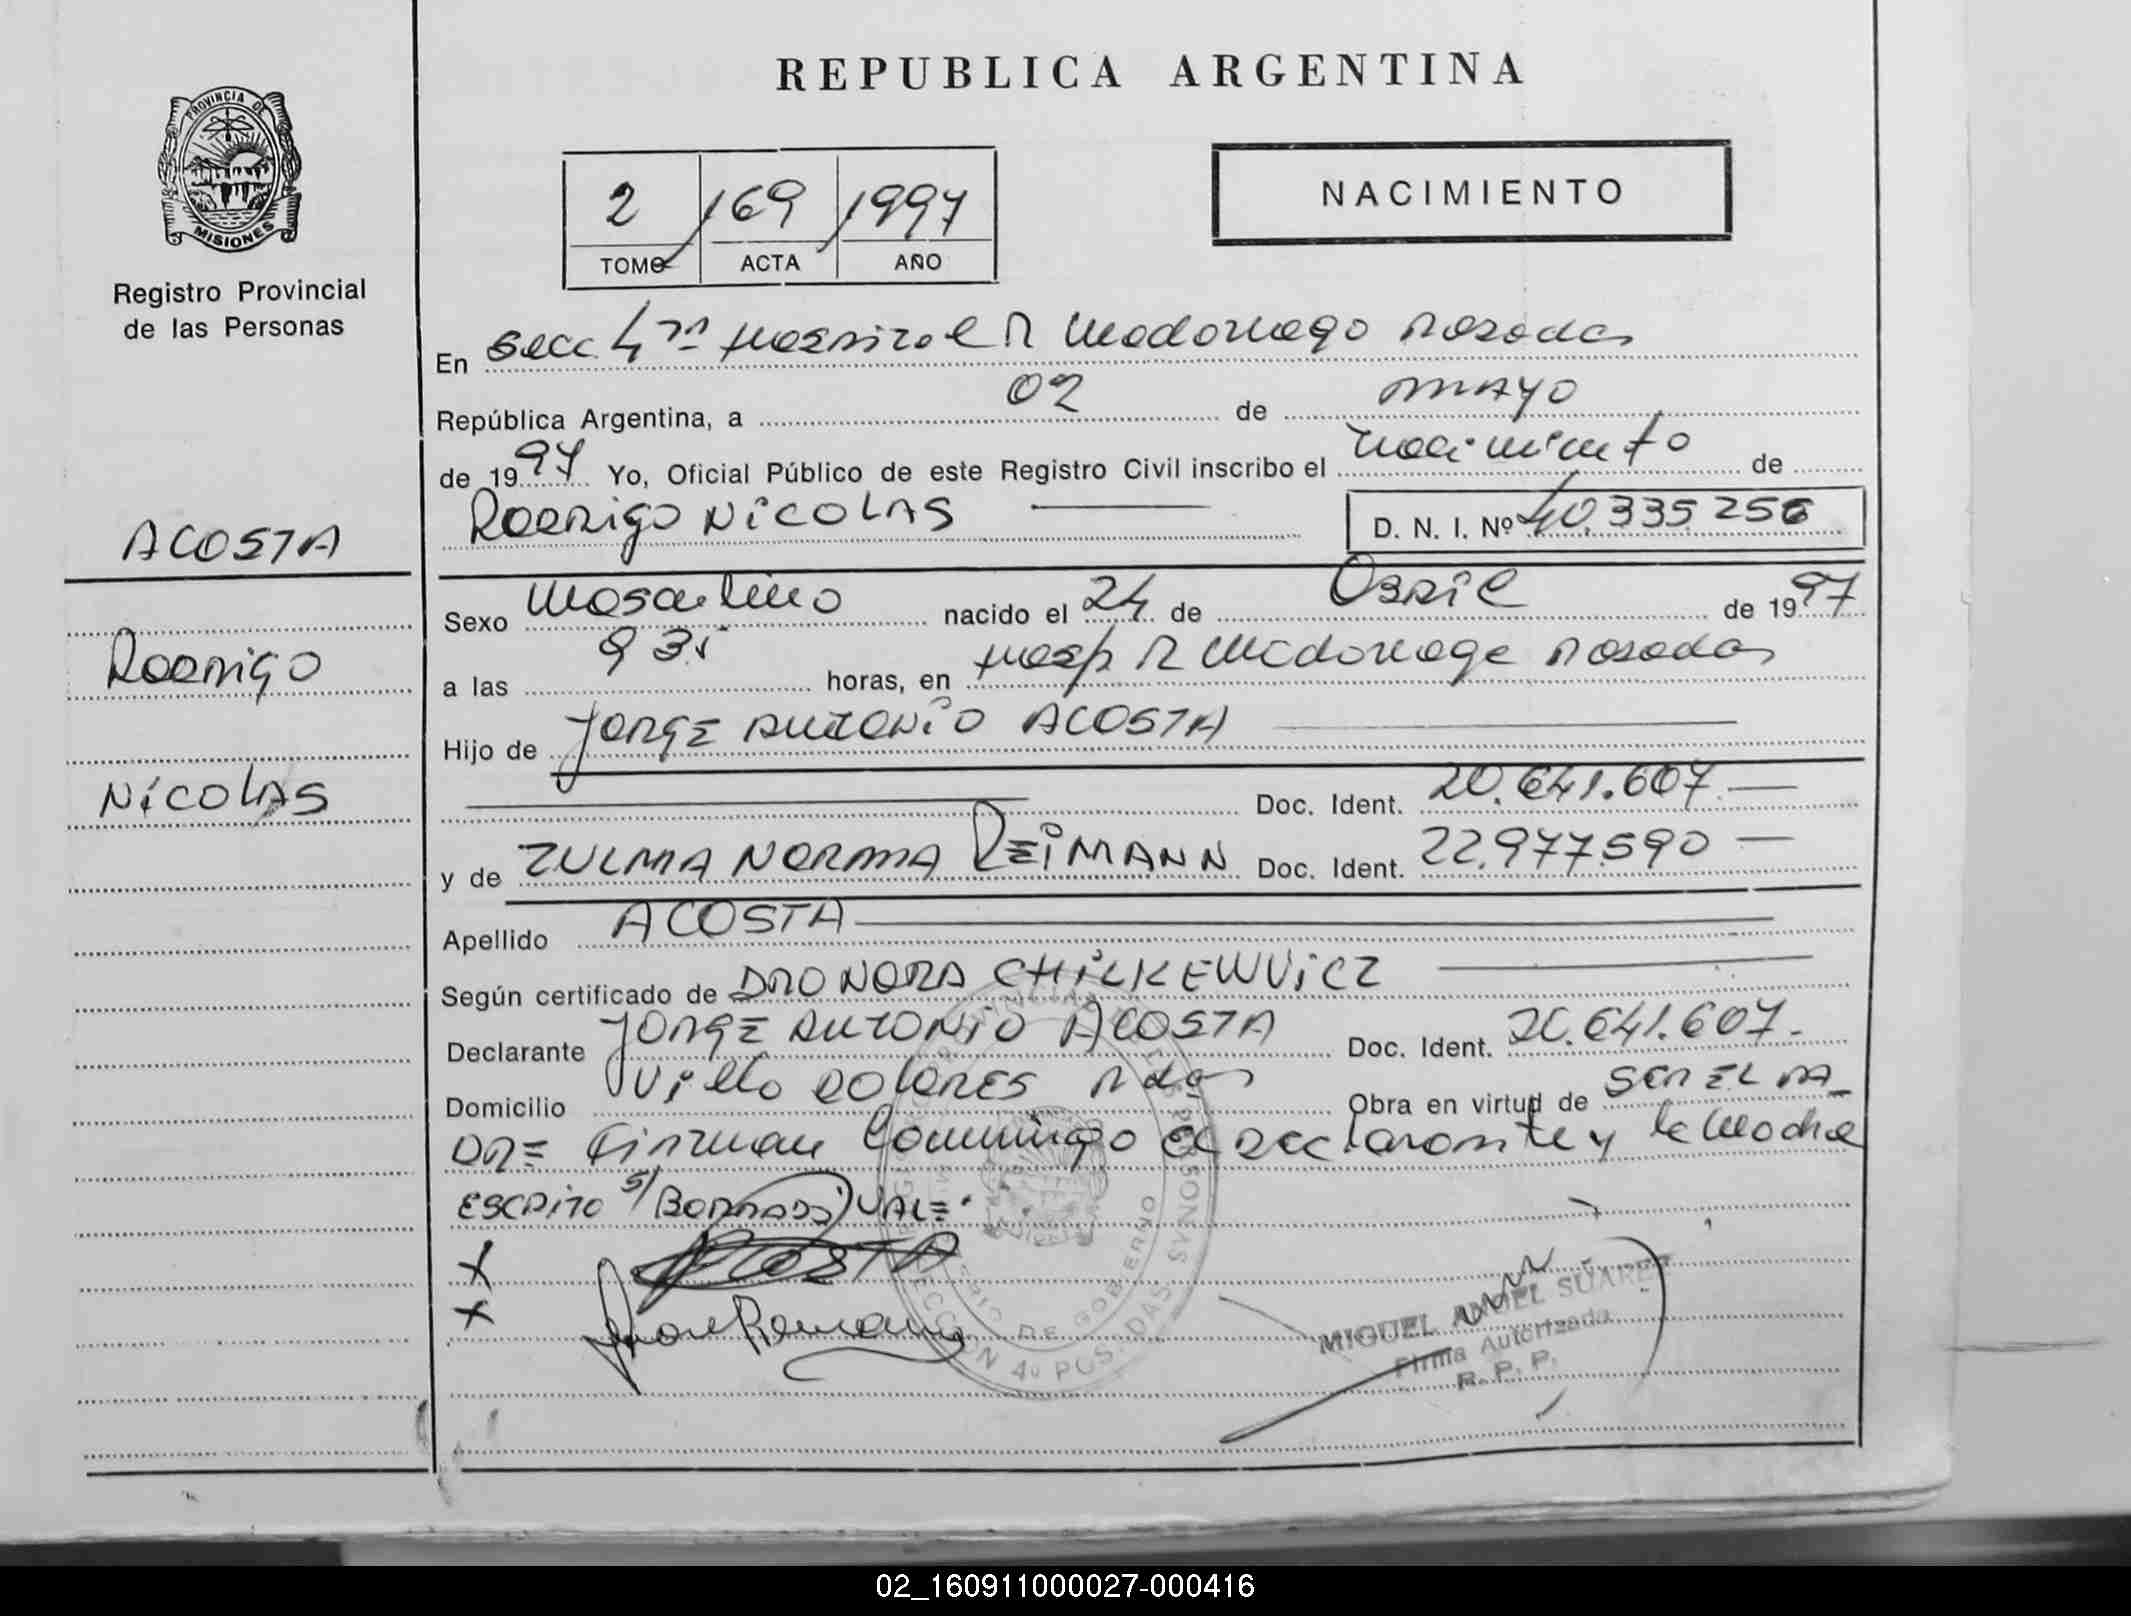 REPUBLICA ARGENTINA
PROVINCIA DE
MISIONES
Registro Provincial
de las Personas
2 169 1997
TOMO ACTA AÑO
NACIMIENTO
En Secc 4ta Hospital R Madariaga Posadas
República Argentina, a 02 de mayo
de 1997 Yo, Oficial Público de este Registro Civil inscribo el nacimiento de
RODRIGO NICOLAS D. N. I. Nº 40.335.256
ACOSTA
Rodrigo
NICOLAS
Sexo Masculino nacido el 24 de Abril de 1997
a las 9 35 horas, en Hosp R Madariaga Posadas
Hijo de JORGE ANTONIO ACOSTA
Doc. Ident. 20.641.607
y de ZULMA NORMA REIMANN Doc. Ident. 22.977.590
Apellido ACOSTA
Según certificado de NORA CHILKEWVICZ
Declarante JORGE ANTONIO ACOSTA Doc. Ident. 20.641.607.
Domicilio Villa DOLORES Pdas Obra en virtud de SER EL PA
DRE Firman Conmigo el Declarante y la Madre
ESCRITO s/ BORRADO VALE.
X ACOSTA
X
MIGUEL ANGEL SUAREZ
Firma Autorizada
R. P. P.
SECCION 4º POSADAS
MISIONES
DE GOBIERNO
02_160911000027-000416